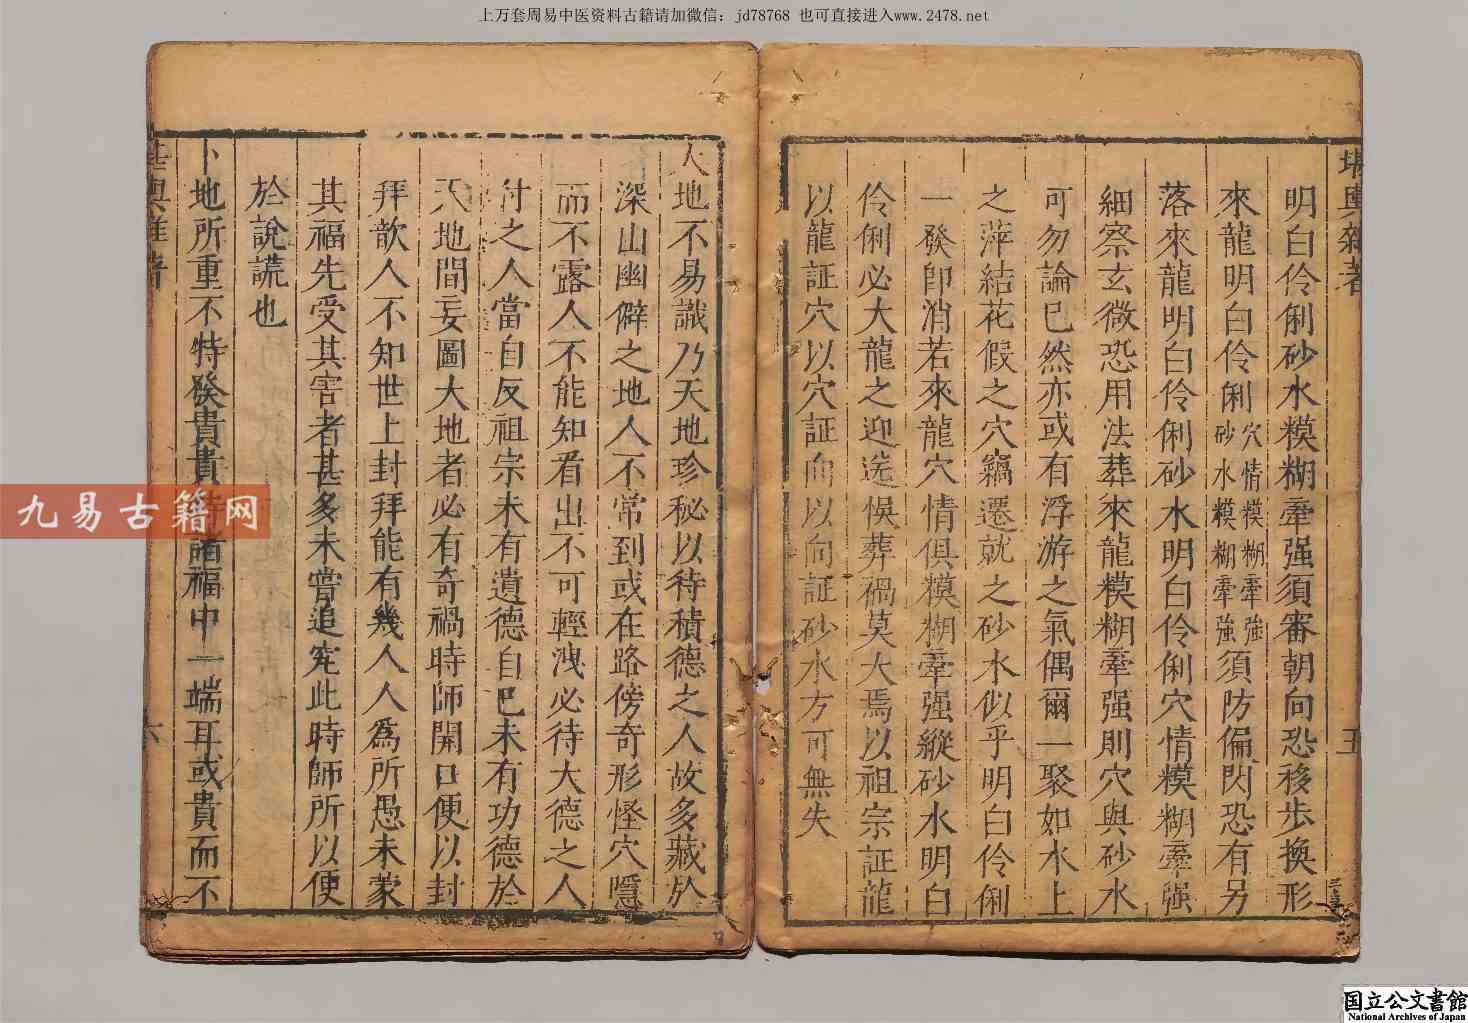 上万套周易中医资料古籍请加微信：jd78768 也可直接进入www.2478.net
堪輿雜著
五
明白伶俐砂水糢糊牽强須審朝向恐移步換形
來龍明白伶俐穴情糢糊牽強砂水糢糊牽強須防偏閃恐有另
落來龍明白伶俐砂水明白伶俐穴情糢糊牽强
細察玄微恐用法葬來龍糢糊牽强則穴與砂水
可勿論已然亦或有浮游之氣偶爾一聚如水上
之萍結花假之穴竊遷就之砂水似乎明白伶俐
一發卽消若來龍穴情俱糢糊牽强縱砂水明白
伶俐必大龍之迎送悞葬禍莫大焉以祖宗証龍
以龍証穴以穴証向以向証砂水方可無失
大地不易識乃天地珍秘以待積德之人故多藏於
深山幽僻之地人不常到或在路傍奇形怪穴隱
而不露人不能知看出不可輕洩必待大德之人
付之人當自反祖宗未有遺德自巳未有功德於
天地間妄圖大地者必有奇禍時師開口便以封
拜歆人不知世上封拜能有幾人人爲所愚未蒙
其福先受其害者甚多未嘗追究此時師所以便
於說謊也
卜地所重不特發貴貴特諸福中一端耳或貴而不
六
九易古籍网
国立公文書館
National Archives of Japan